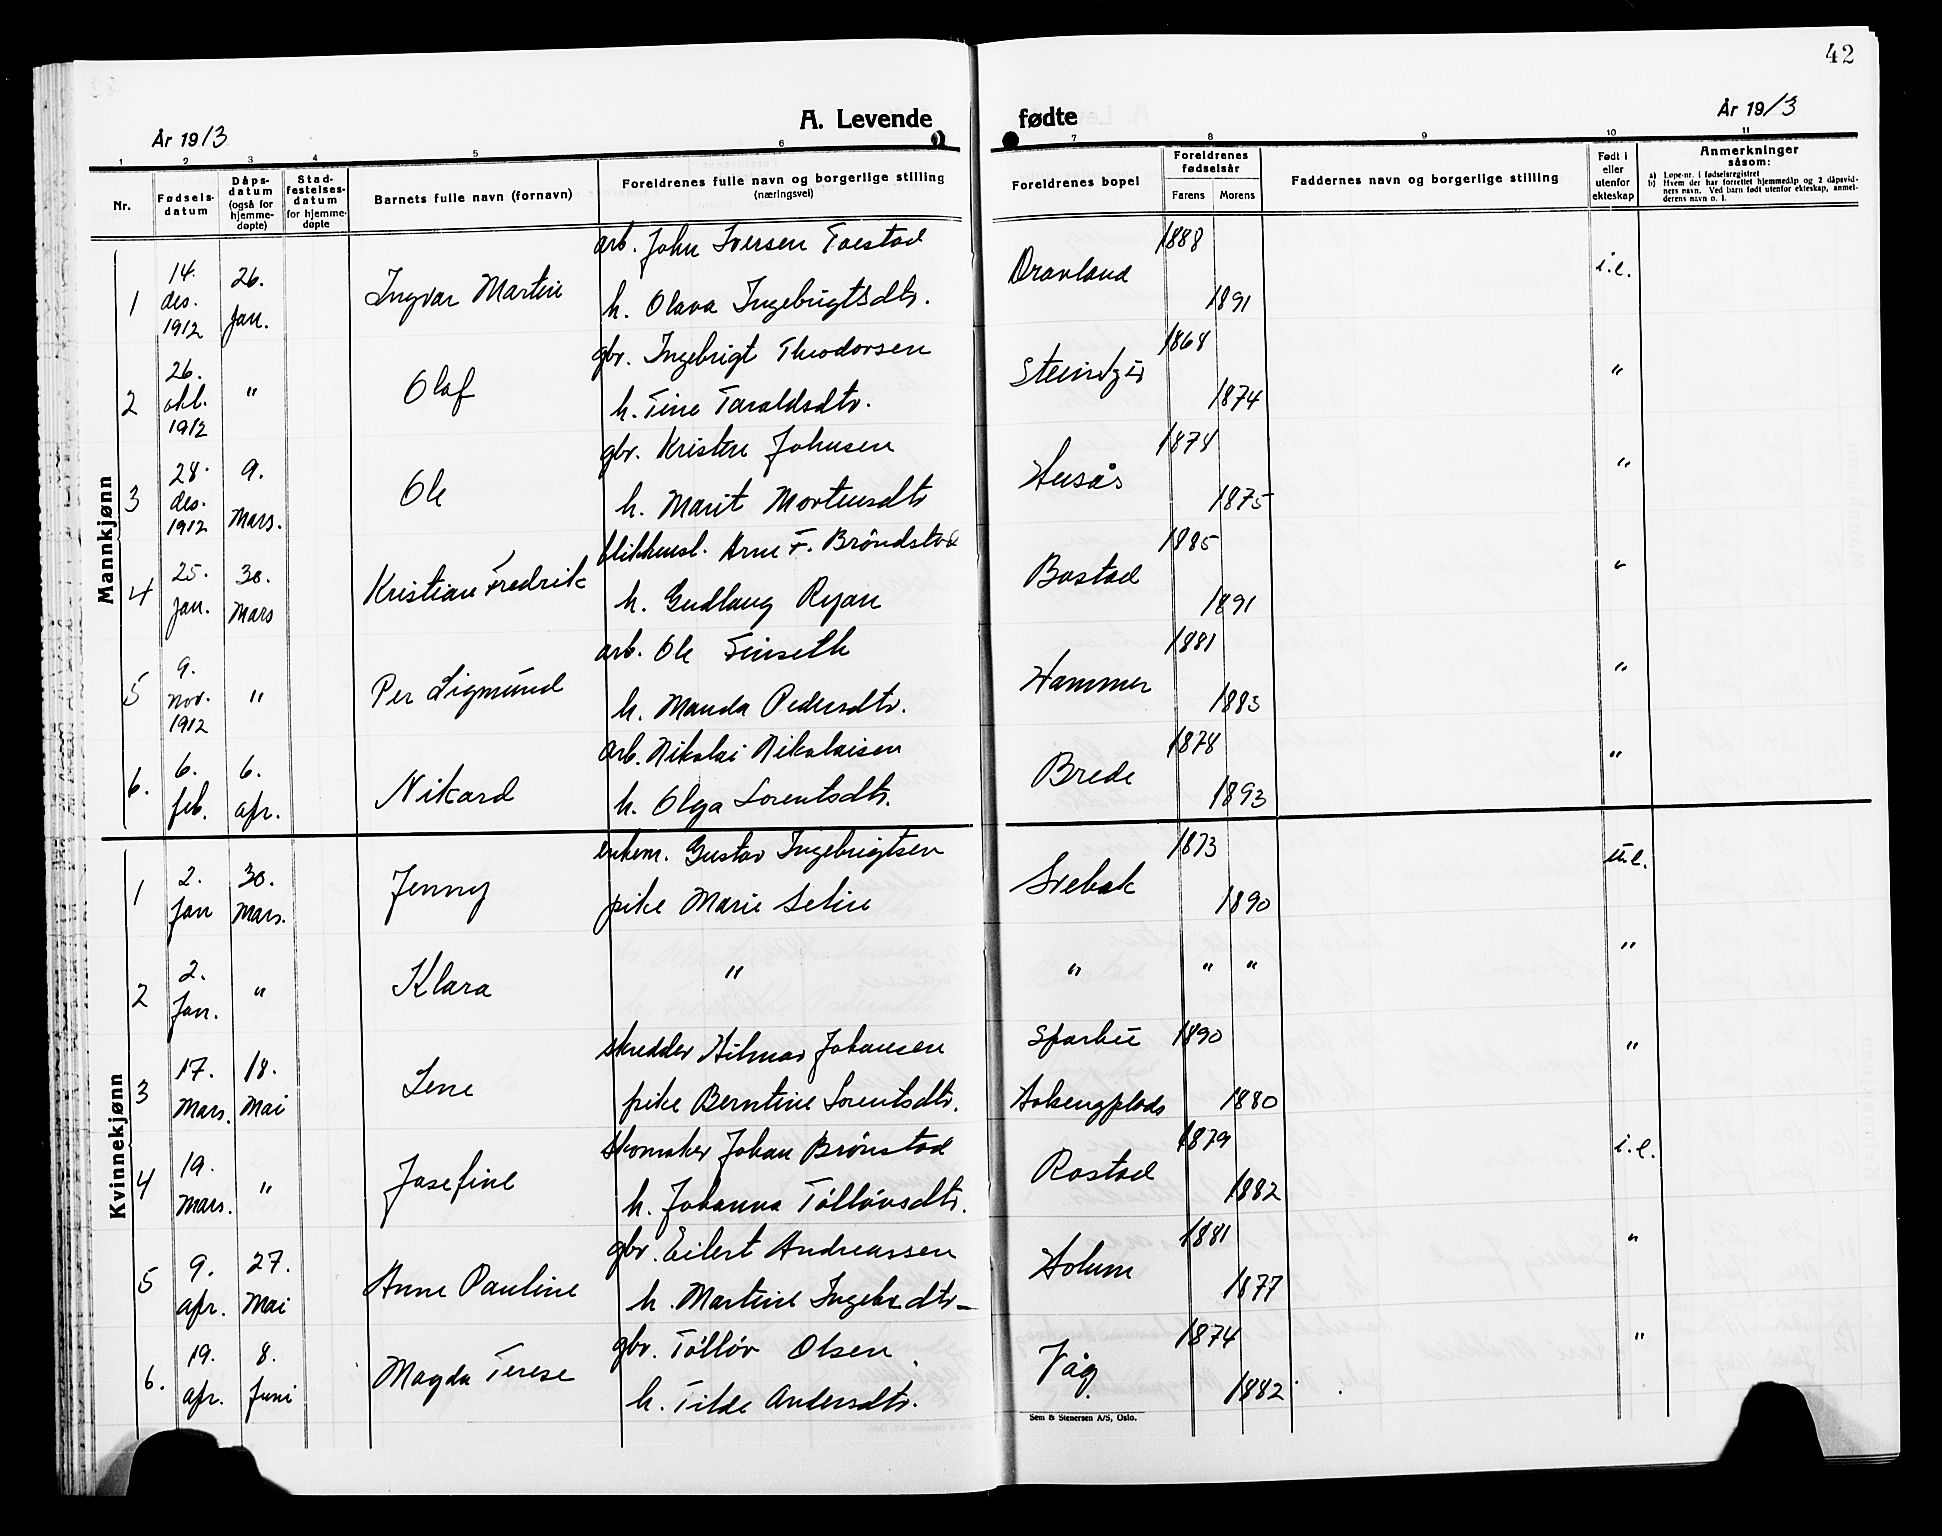 42
År 1913
A. Levende fødte
År 1913
1 2 3 4 5 6 7 8 9 10 11
Nr.
Fødsels-datum
Dåps-datum (også for hjemme-døpte)
Stad-festelses-datum for hjemme-døpte
Barnets fulle navn (fornavn)
Foreldrenes fulle navn og borgerlige stilling (næringsvei)
Foreldrenes bopel
Foreldrenes fødselsår
Farens Morens
Faddernes navn og borgerlige stilling
Født i eller utenfor ekteskap
Anmerkninger såsom:
a) Løpe-nr. i fødselsregistret
b) Hvem der har forrettet hjemmedåp og 2 dåpsvidners navn. Ved barn født utenfor ekteskap, anmelderens navn o. l.
Mannkjønn
1 14. des. 1912 26. Jan. Ingvar Martin arb. John Iversen 1888 i.e.
h. Olava Ingebrigtsdtr. 1891
2 26. okt. 1912 " Olaf gbr. Ingebrigt Theodorsen 1868 "
h. Tine Taraldsdtr. 1874
3 28. des. 1912 9. Mars. Ole gbr. Kristen Johnsen Husås 1878 "
h. Marit Mortensdtr 1875
4 25. Jan. 30. Mars Kristian Fredrik blikkensl. Arne F. Bröndstad 1885 "
h. Gudlaug Ryan 1891
5 9. nov. 1912 " Per Sigmund arb. Ole Finseth Hammer 1881 "
h. Manda Pedersdtr. 1883
6. 6. feb. 6. apr. Nikard arb. Nikolai Nikolaisen Brede 1878 "
h. Olga Lorentsdtr. 1893
Kvinnekjønn
1 2. Jan 30. Mars. Jenny enkem. Gustav Ingebrigtsen Svebak 1873 u.e.
pike Marie Seline 1890
2 2. Jan. " Klara " " " " "
3 17. Mars. 18. Mai Lene skredder Hilmar Johansen Sparbu 1890 "
pike Berntine Lorentsdtr. 1880
4 19. Mars. " Josefine skomaker Johan Brönstad Rostad 1879 i.e.
h. Johanna Tölløvsdtr. 1882
5 9. apr. 27. Mai Anne Pauline gbr. Eilert Andreassen Holum 1881 "
h. Martine Ingebr.dtr 1877
6. 19. apr. 8. Juni Magda Terese gbr. Tölløv Olsen Våg 1874 "
h. Tilde Andersdtr. 1882
Sem & Stenersen A/S, Oslo.